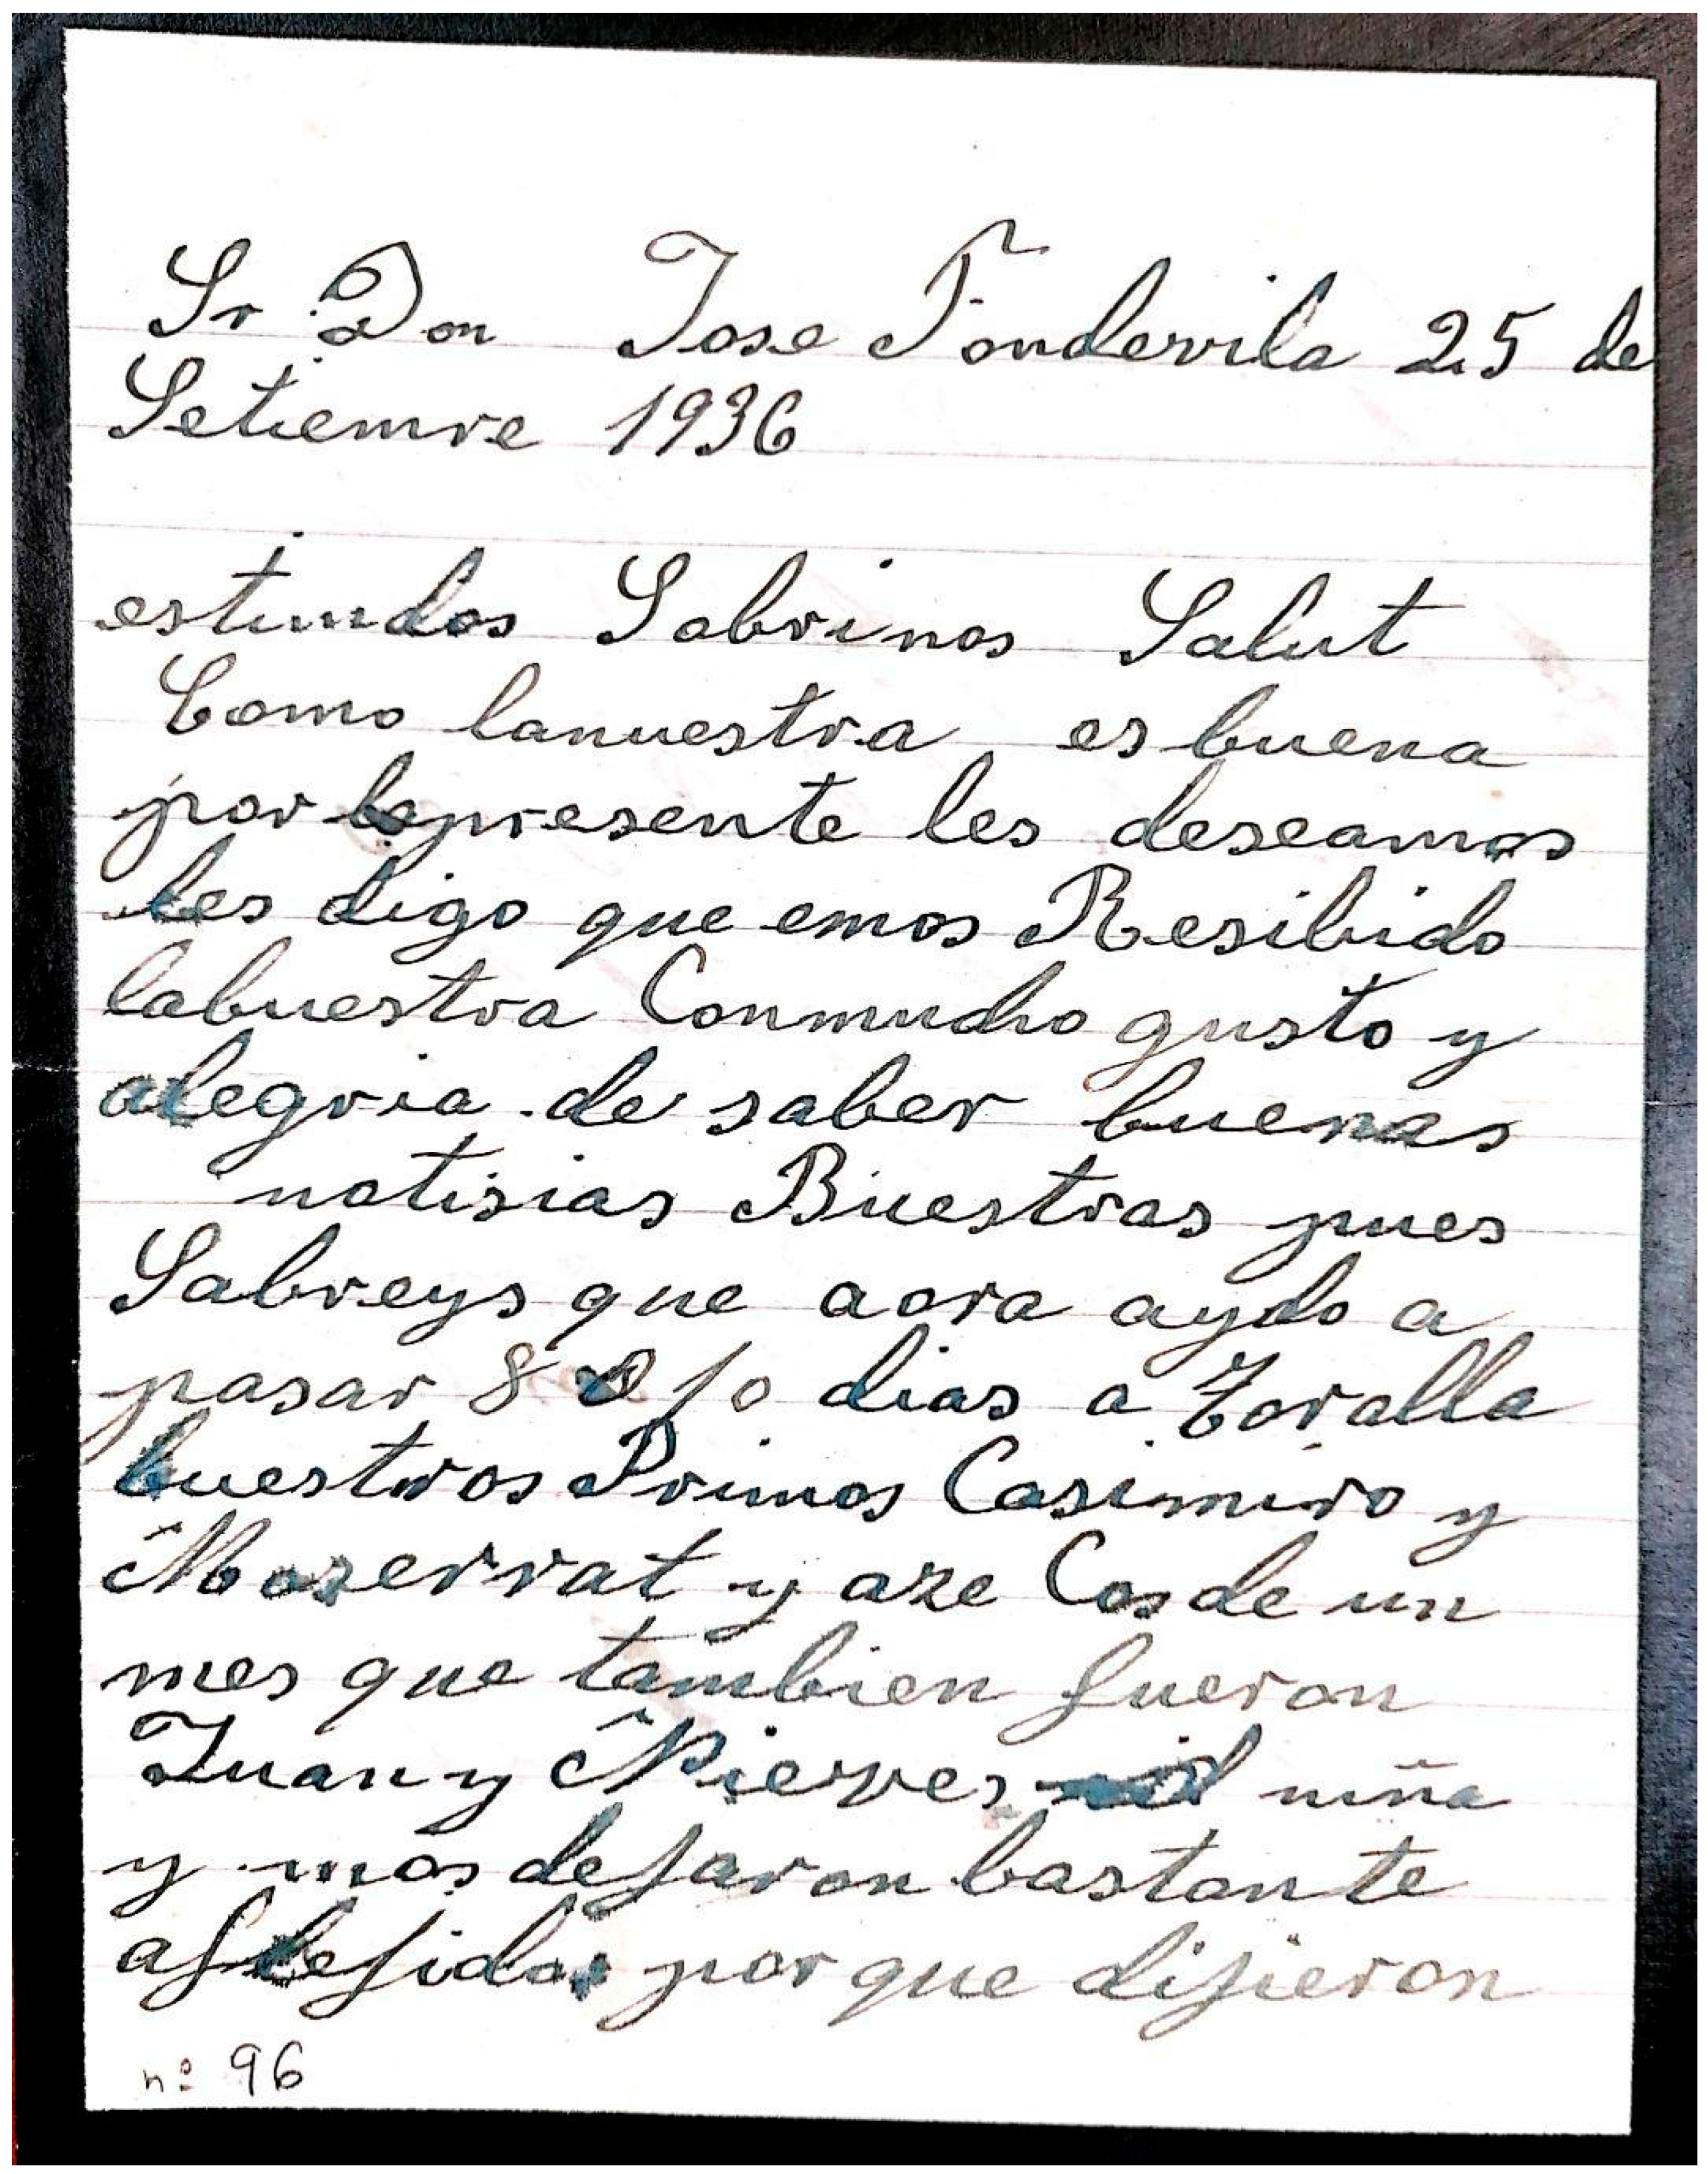 Sr Don Jose Fondevila 25 de
Setiemre 1936
estimdos Sobrinos Salut
Como lanuestra es buena
por lapresente les deseamos
les digo que emos Resibido
labuestra Conmucho gusto y
alegria de saber buenas
notisias Buestras pues
Sabreys que aora aydo a
pasar 8 o 10 dias a Toralla
buestros Primos Casimiro y
Moserrat y aze Cosde un
mes que tambien fueron
Juan y Nieves niña
y mos dejaron bastante
aflejidos por que dijieron
nº 96